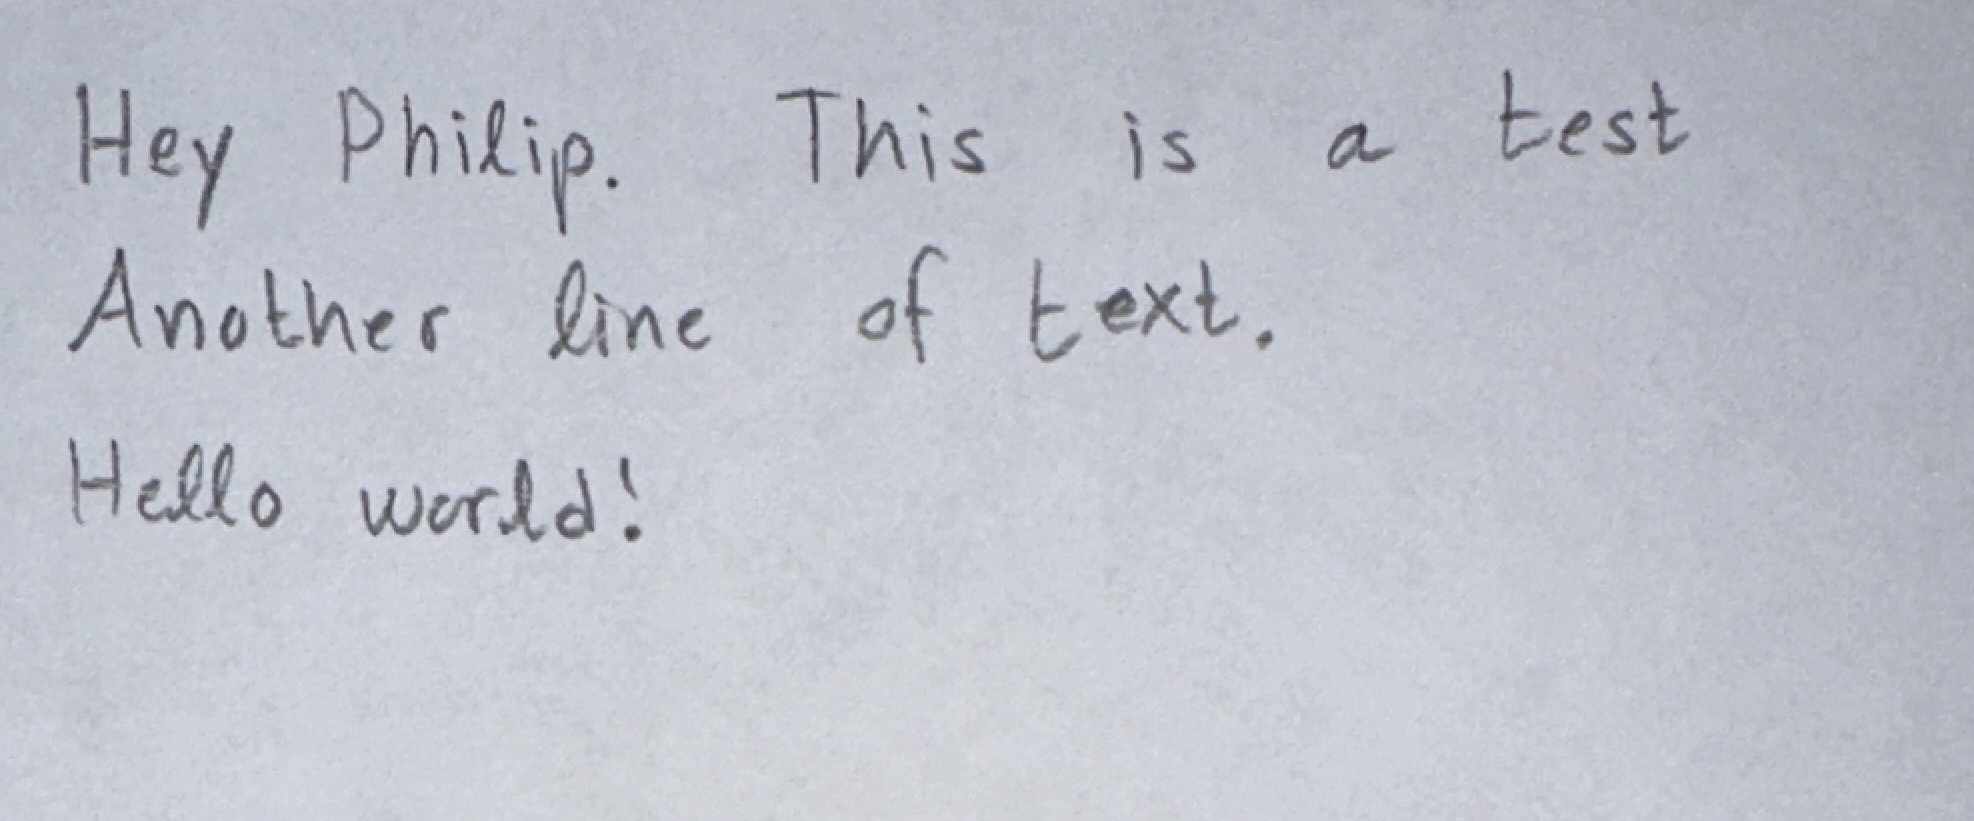 Hey Philip. This is a test
Another line of text.
Hello world!